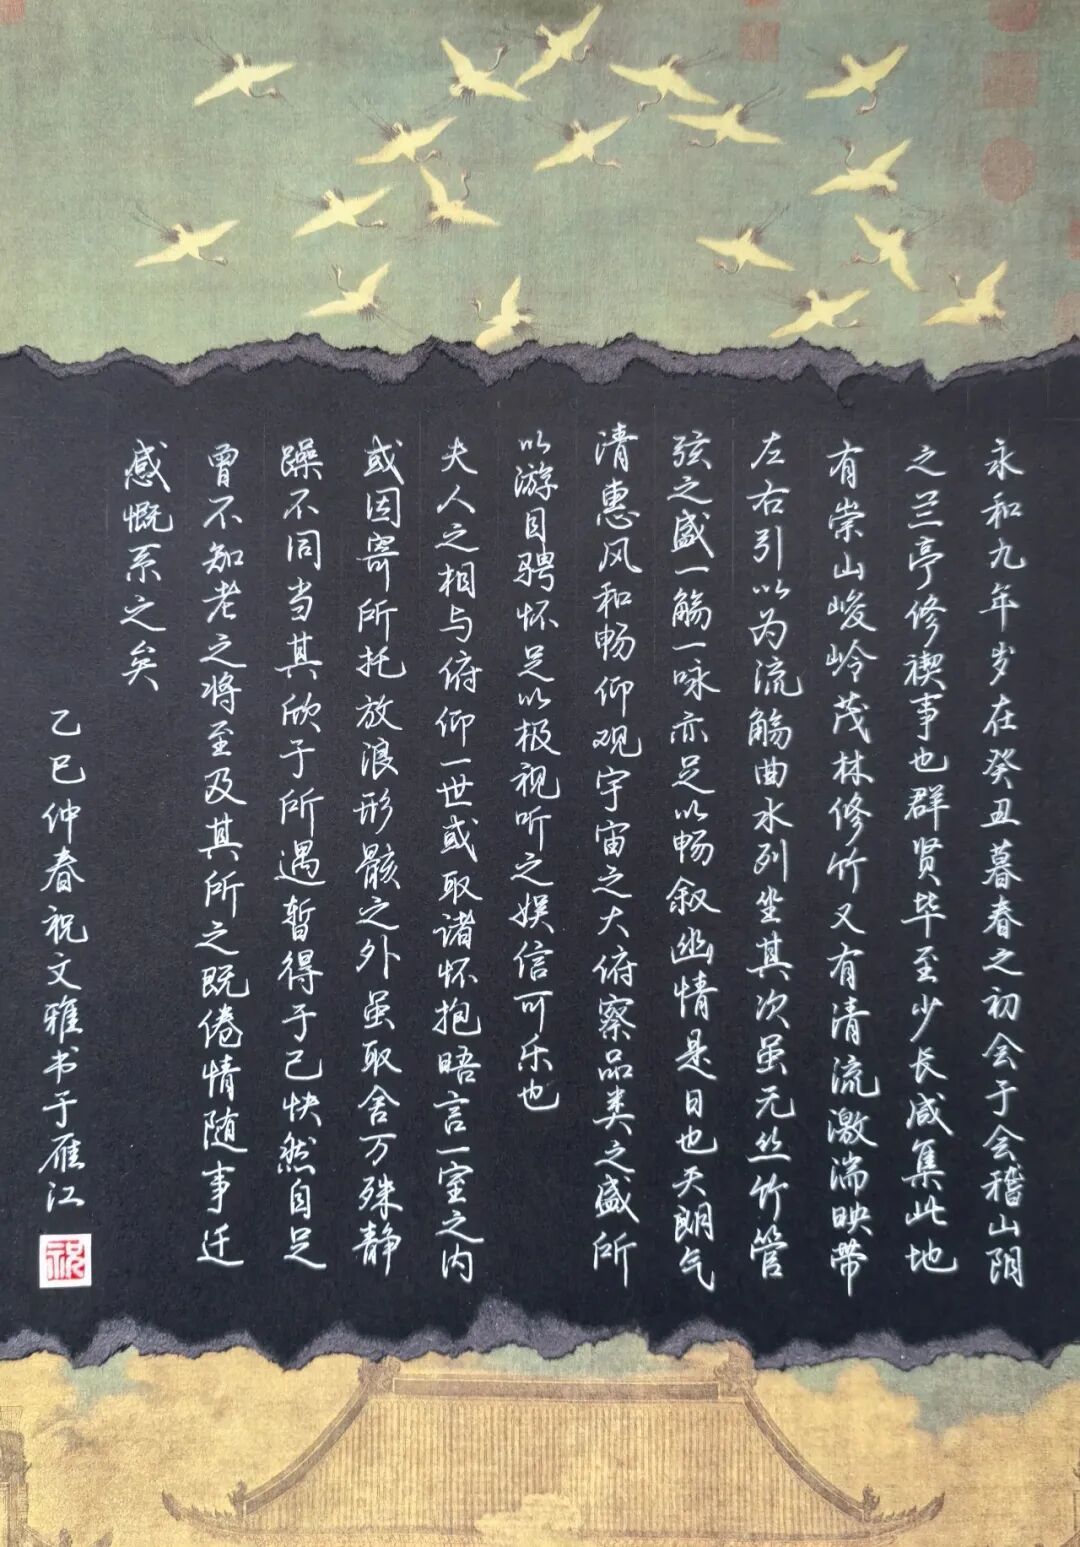 永和九年岁在癸丑暮春之初会于会稽山阴
之兰亭修禊事也群贤毕至少长咸集此地
有崇山峻岭茂林修竹又有清流激湍映带
左右引以为流觞曲水列坐其次虽无丝竹管
弦之盛一觞一咏亦足以畅叙幽情是日也天朗气
清惠风和畅仰观宇宙之大俯察品类之盛所
以游目骋怀足以极视听之娱信可乐也
夫人之相与俯仰一世或取诸怀抱晤言一室之内
或因寄所托放浪形骸之外虽取舍万殊静
躁不同当其欣于所遇暂得于己快然自足
曾不知老之将至及其所之既倦情随事迁
感慨系之矣
乙巳仲春祝文雅书于雁江
祝